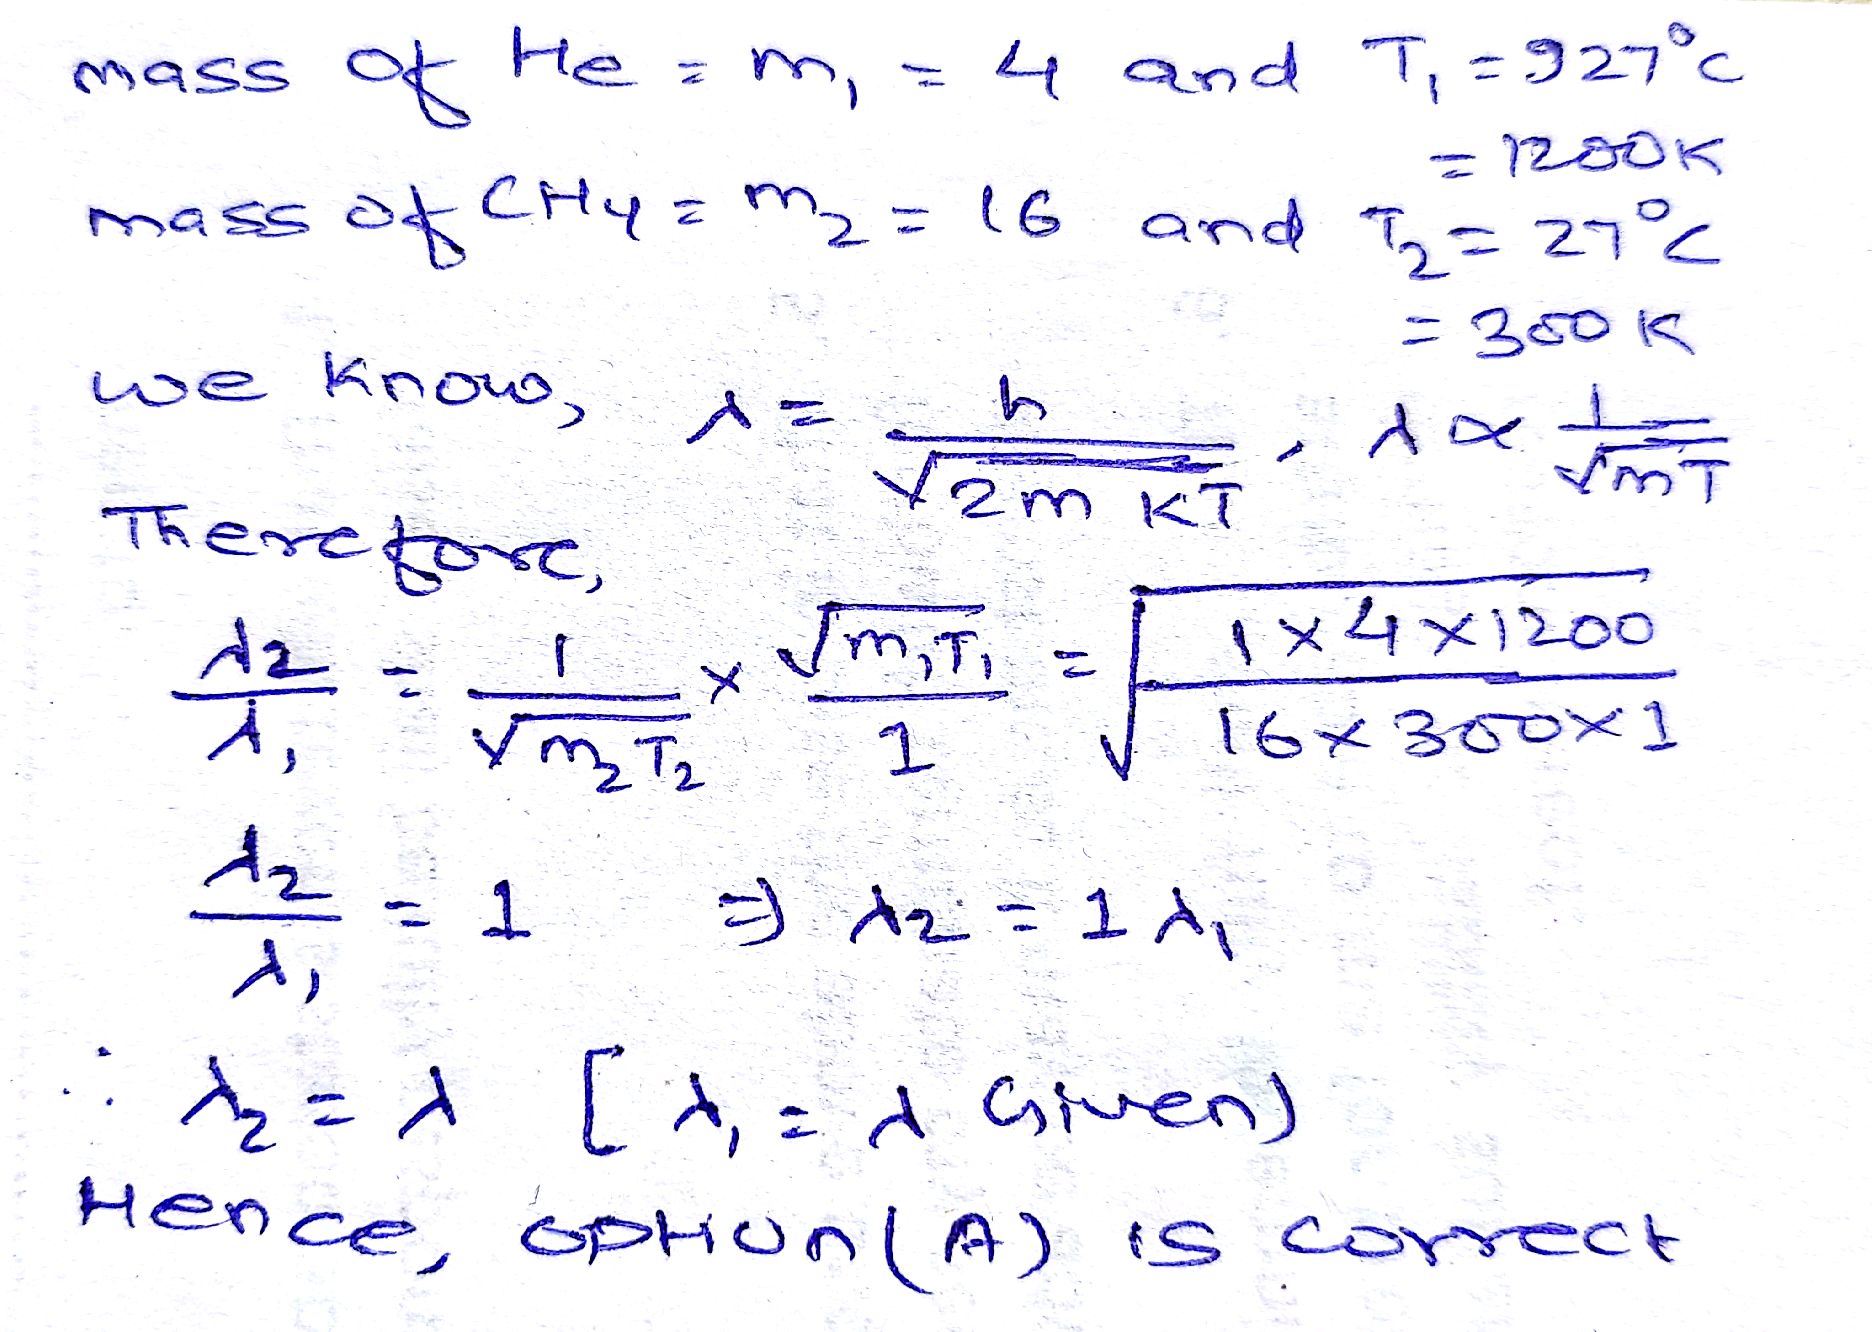 mass of He = m₁ = 4 and T₁ = 927°C
= 1200K
mass of CH4 = m₂ = 16 and T₂ = 27°C
= 300 K
we know, λ = h / √(2m KT) , λ ∝ 1 / √(mT)
Therefore,
λ2 / λ₁ = 1 / √(m₂T₂) × √(m₁T₁) / 1 = √((1×4×1200) / (16×300×1))
λ2 / λ₁ = 1 ⇒ λ2 = 1 λ₁
∴ λ₂ = λ [ λ₁ = λ Given)
Hence, option (A) is correct